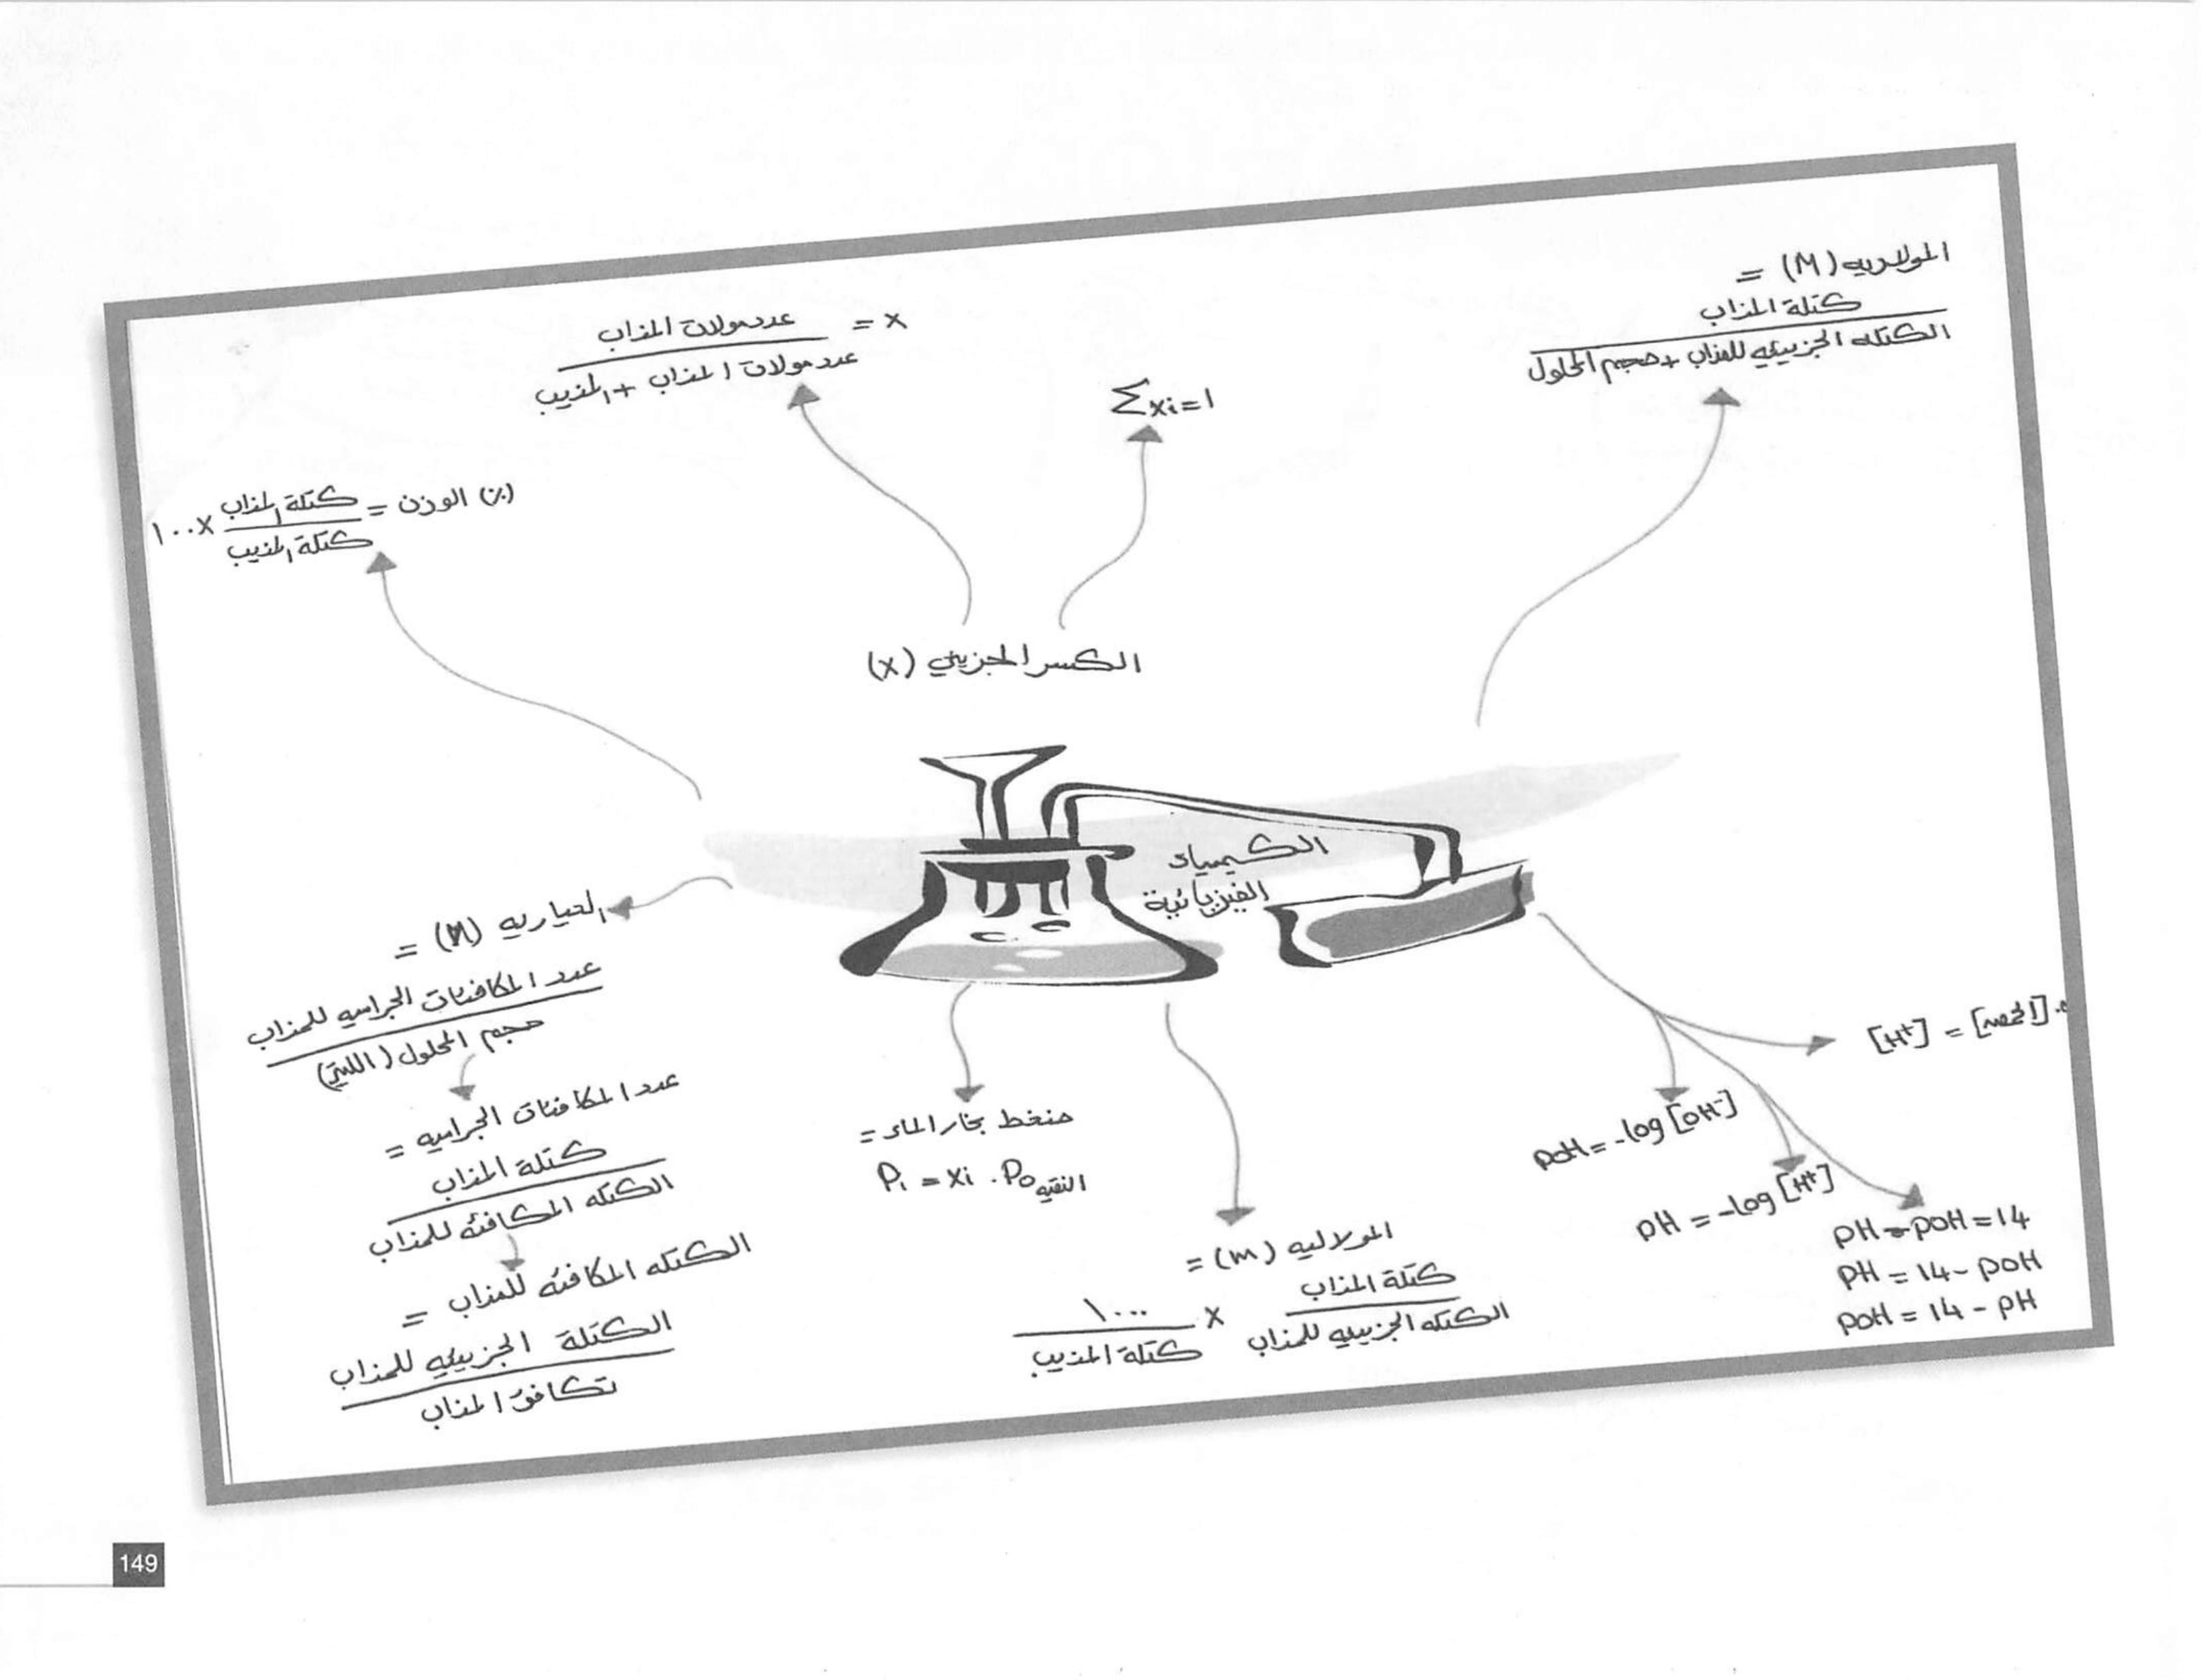 المولاريه (M) =
كتلة المذاب
الكتله الجزيئيه للمذاب + حجم المحلول
x =
عدد مولات المذاب
عدد مولات المذاب + المذيب
∑xi=1
(٪) الوزن = كتلة المذاب
كتلة المذيب
x ١٠٠
الكسر الجزيئي (x)
الكيمياء
الفيزيائية
العياريه (N) =
عدد المكافئات الجراميه للمذاب
حجم المحلول (اللتر)
عدد المكافئات الجراميه =
كتلة المذاب
الكتله المكافئه للمذاب
الكتله المكافئه للمذاب =
الكتلة الجزيئيه للمذاب
تكافؤ المذاب
ضغط بخار الماء =
Pi = xi . Po النقيه
المولاليه (m) =
كتلة المذاب
الكتله الجزيئيه للمذاب
x
١٠٠٠
كتلة المذيب
[H+] = [الحمض].
pOH = -log [OH-]
pH = -log [H+]
pH - pOH = 14
pH = 14 - pOH
pOH = 14 - pH
149